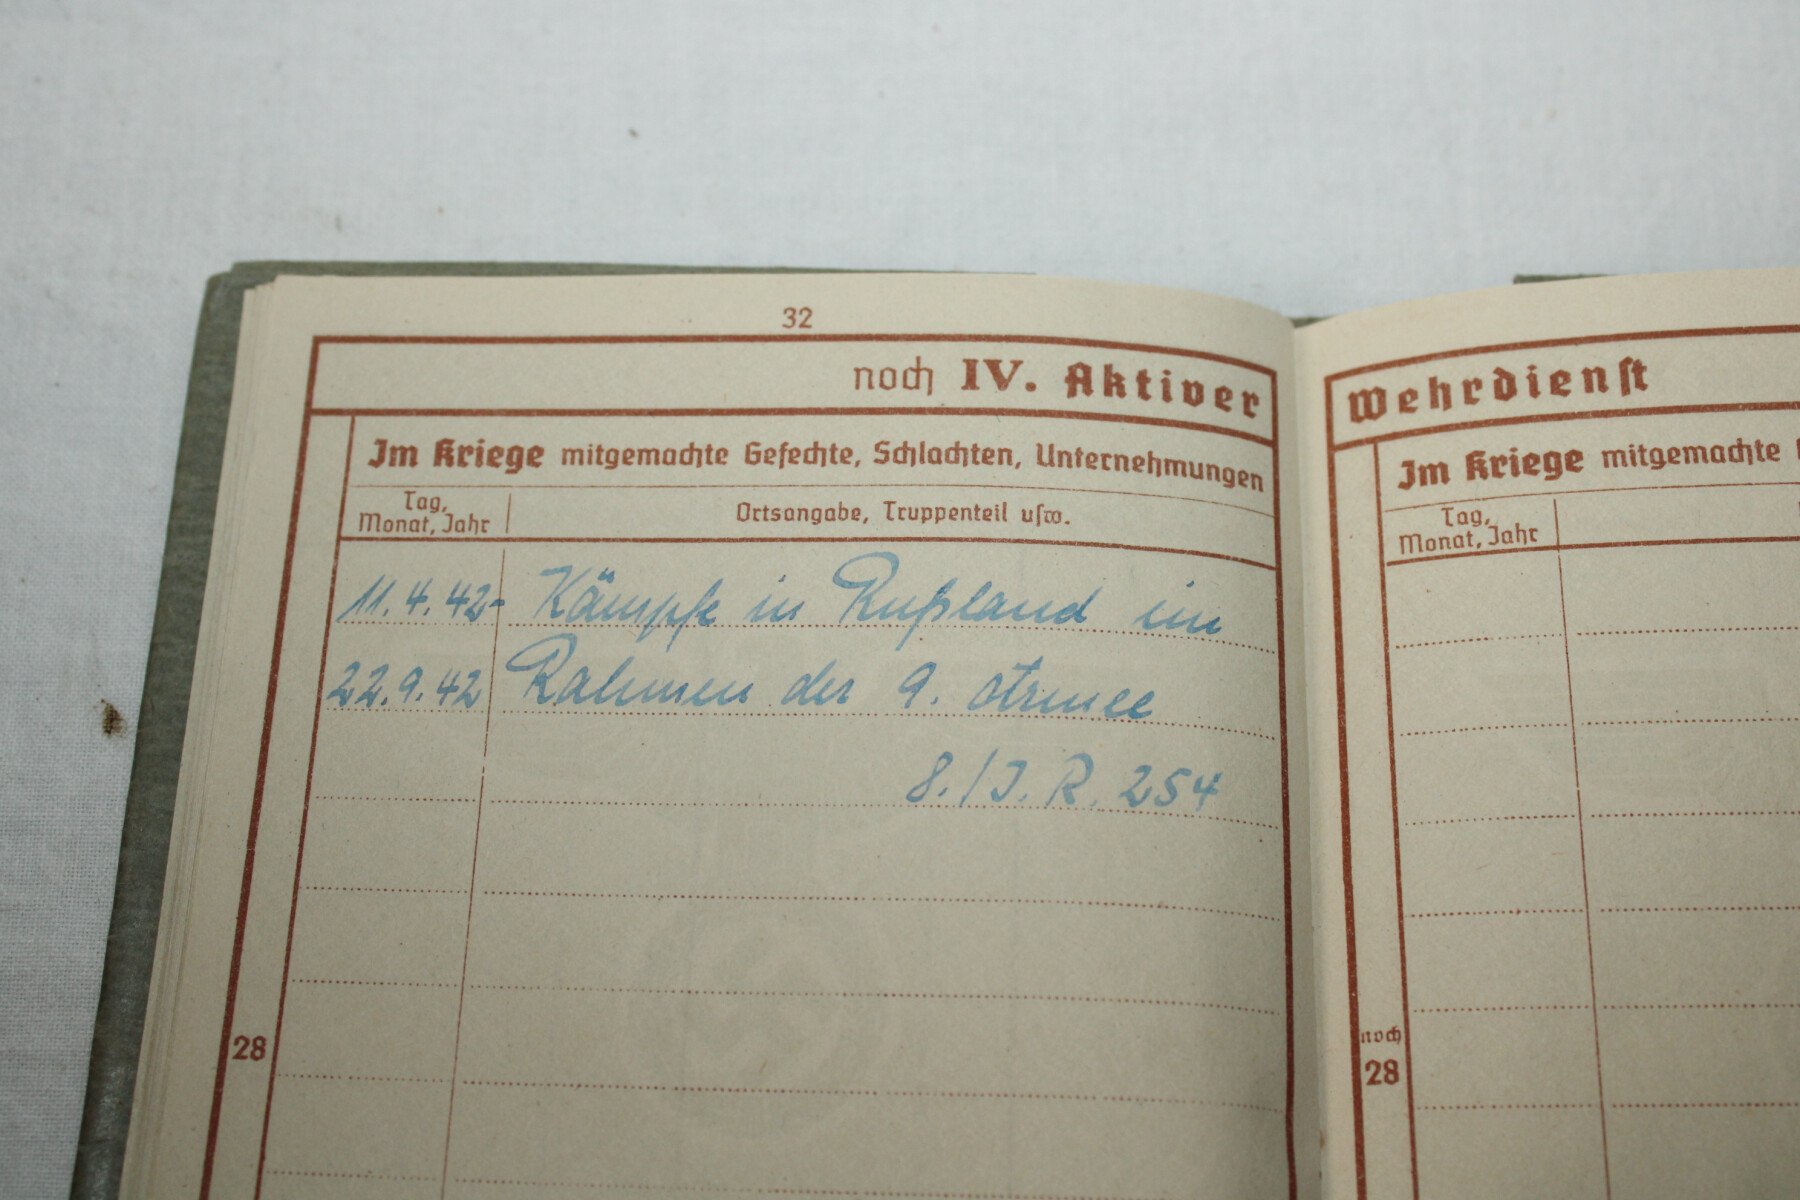 32
noch IV. Aktiver
Im Kriege mitgemachte Gefechte, Schlachten, Unternehmungen
Tag,
Monat, Jahr
Ortsangabe, Truppenteil usw.
11.4.42- Kämpfe in Rußland im
22.9.42 Rahmen der 9. Armee
8./J. R. 254
28
Wehrdienst
Im Kriege mitgemachte
Tag,
Monat, Jahr
noch
28